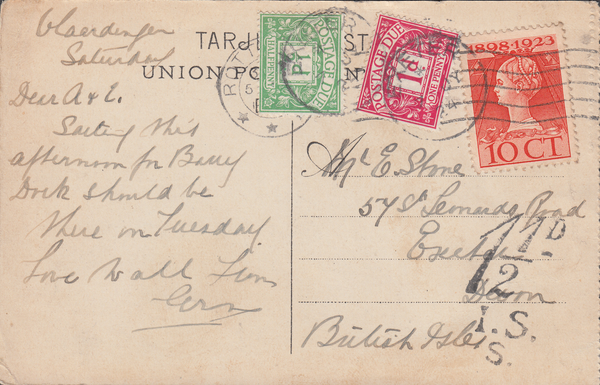 Vlaardingen
Saturday
Dear A & E.
Sailing this
afternoon for Barry
Dock should be
there on Tuesday
Love to all from
TARJ
UNION PO
POSTAGE DUE
HALFPENNY
POSTAGE DUE
1D
ONE PENNY
1898-1923
10 CT
Mr E. Stone
57 St Leonards Road
Exeter
Devon
British Isles
1 1/2 D
I.S.
S.